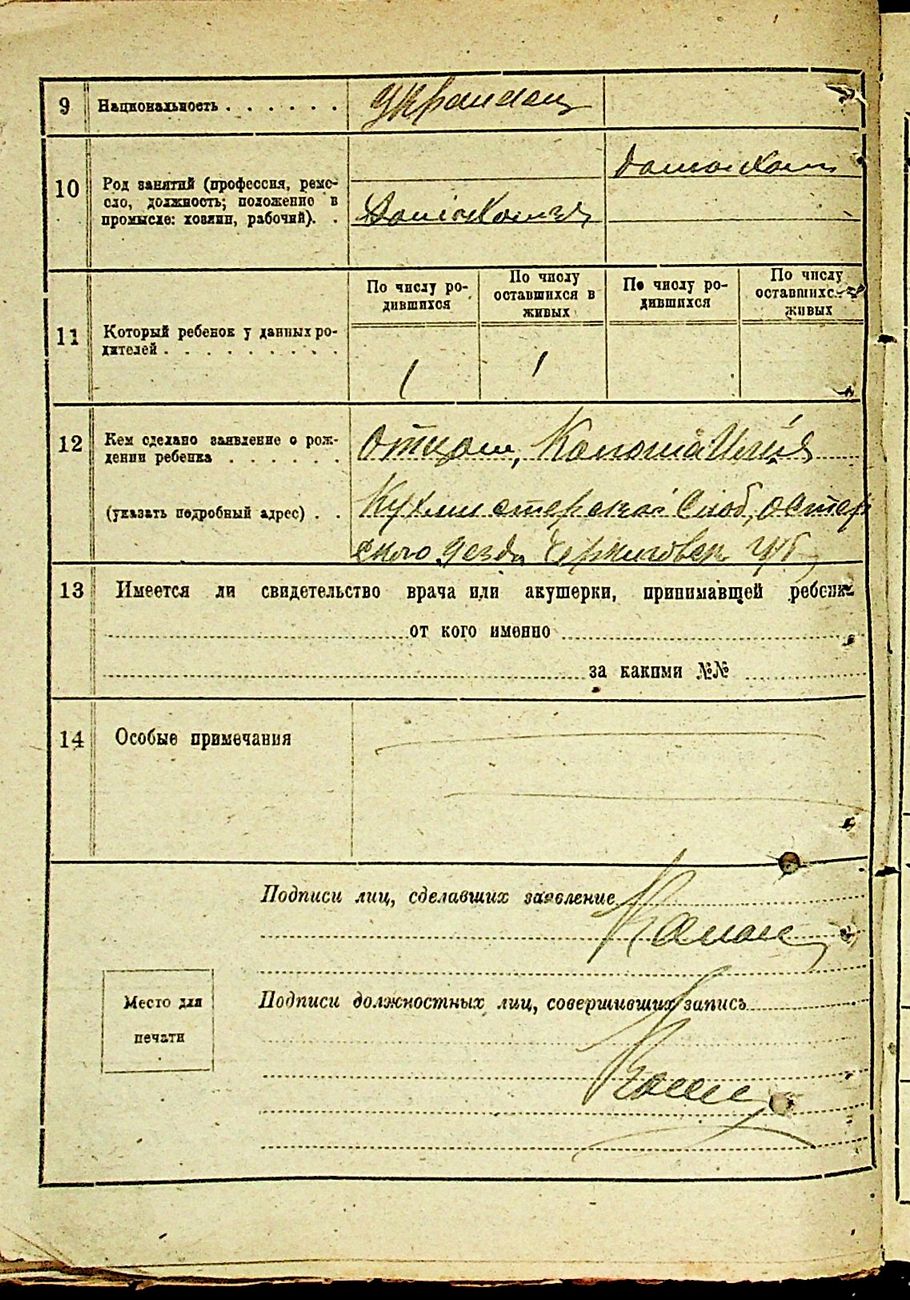 9 Национальность . . . . . . . Украинец
10 Род занятий (профессия, ремес-
сло, должность; положение в
промысле: хозяин, рабочий). .
По числу ро-
дившихся
По числу
оставшихся в
живых
По числу ро-
дившихся
По числу
оставшихся
живых
11 Который ребенок у данных ро-
дителей . . . . . . . . . .
1 1
12 Кем сделано заявление о рож-
дении ребенка . . . . . . .
Отцом,
(указать подробный адрес) . .
Кухмистерская Слоб, Остер
ского уезда Черниговск губ
13 Имеется ли свидетельство врача или акушерки, принимавщей ребенк
от кого именно
за какими №№
14 Особые примечания
Подписи лиц, сделавших заявление
Место для
печати
Подписи должностных лиц, совершивших запись